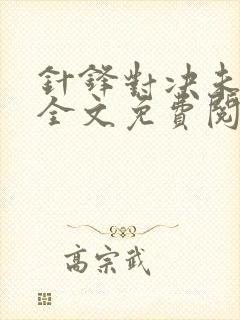 針鋒對决未
全文免費閱
高宗武